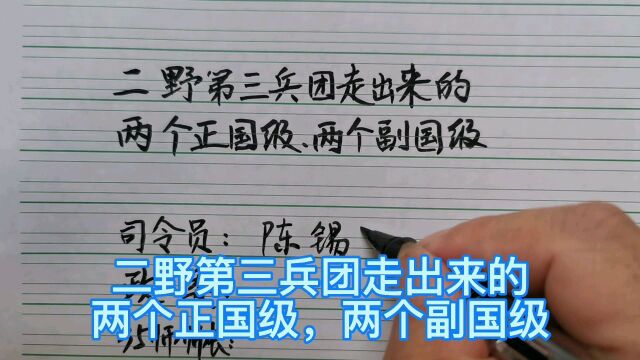 二野第三兵团走出来的
两个正国级、两个副国级
司令员：陈锡
二野第三兵团走出来的
两个正国级，两个副国级